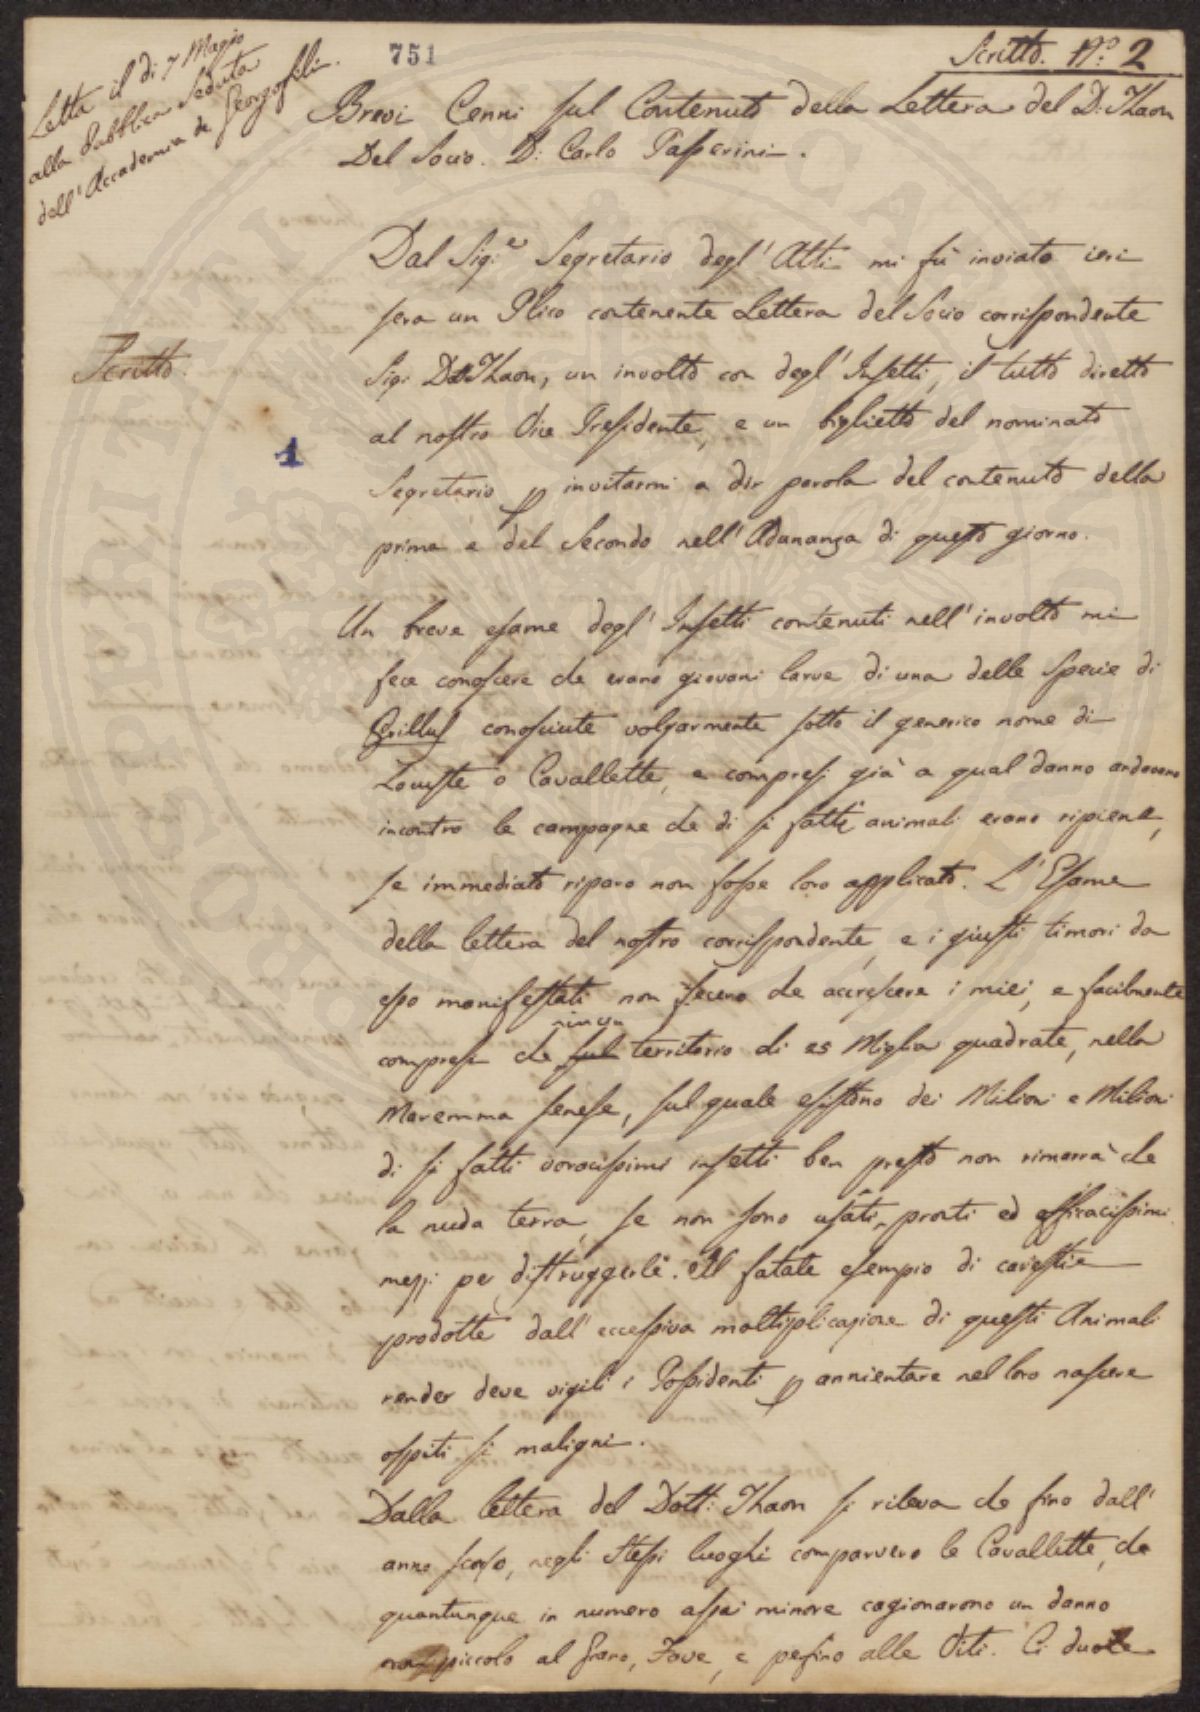 Letta il dì 7 Maggio
alla Pubblica Seduta
dell'Accademia de Georgofili.
751
Scritto. N.º 2
Brevi Cenni sul Contenuto della Lettera del D. Thaon
Del Socio. D: Carlo Passerini.
Dal Sig.e Segretario degl'Atti mi fù inviato ieri
sera un Plico contenente Lettera del Socio corrispondente
Scritto.
Sig: Dott Thaon, un involto con degl'Insetti, il tutto diretto
al nostro Vice Presidente, e un biglietto del nominato
1
Segretario p invitarmi a dir parola del contenuto della
prima e del Secondo nell'Adunanza di questo giorno.
Un breve esame degl'Insetti contenuti nell'involto mi
fece conoscere che erano giovani larve di una delle Specie di
Grillus conosciute volgarmente sotto il generico nome di
Locuste o Cavallette, e compresi già a qual danno andavano
incontro le campagne che di si fatti animali erano ripiene,
se immediato riparo non fosse loro applicato. L'Esame
della lettera del nostro corrispondente, e i giusti timori da
esso manifestati non fecero che accrescere i miei, e facilmente
in un
compresi che sul territorio di 25 Miglia quadrate, nella
Maremma senese, sul quale esistono dei Milioni e Milioni
di si fatti voracissimi insetti ben presto non rimarrà che
la nuda terra, se non sono usati pronti ed efficacissimi
mezzi per distruggerle. Il fatale esempio di carestie
prodotte dall'eccessiva moltiplicazione di questi Animali
render deve vigili i Possidenti p annientare nel loro nascere
ospiti si maligni.
Dalla lettera del Dott: Thaon si rileva che fino dall'
anno scorso, negli stessi luoghi comparvero le Cavallette, che
quantunque in numero assai minore cagionarono un danno
non piccolo al Grano, Fave, e persino alle Viti. Ci duole